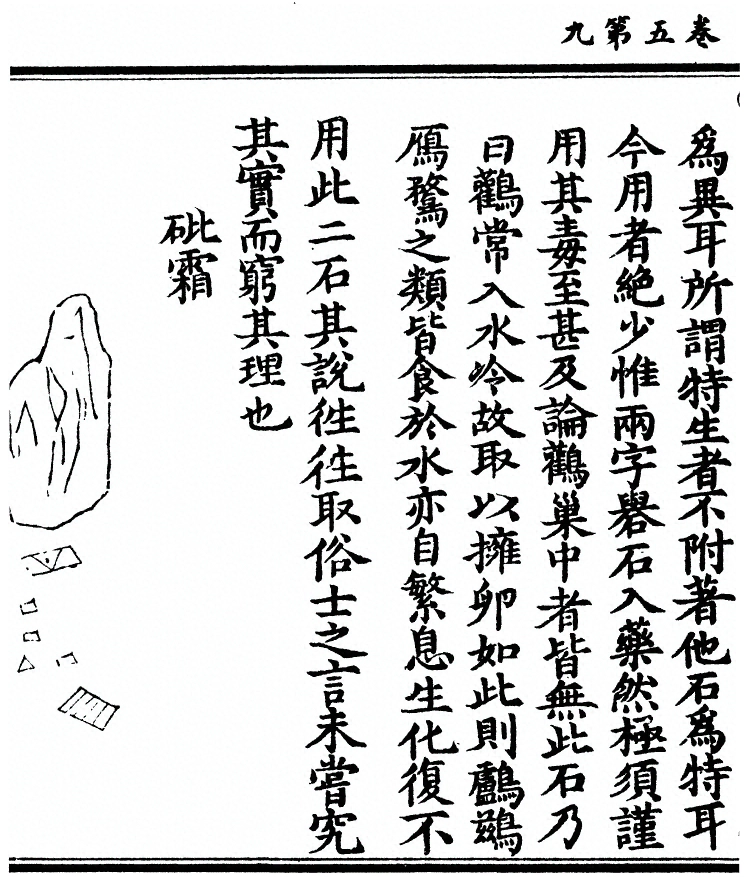 卷五第九
為異耳所謂特生者不附著他石為特耳
今用者絶少惟兩字礜石入藥然極須謹
用其毒至甚及論鸛巢中者皆無此石乃
曰鸛常入水冷故取以擁卵如此則鸕鷀
鴈鶩之類皆食於水亦自繁息生化復不
用此二石其說徃徃取俗士之言未嘗究
其實而窮其理也
砒霜